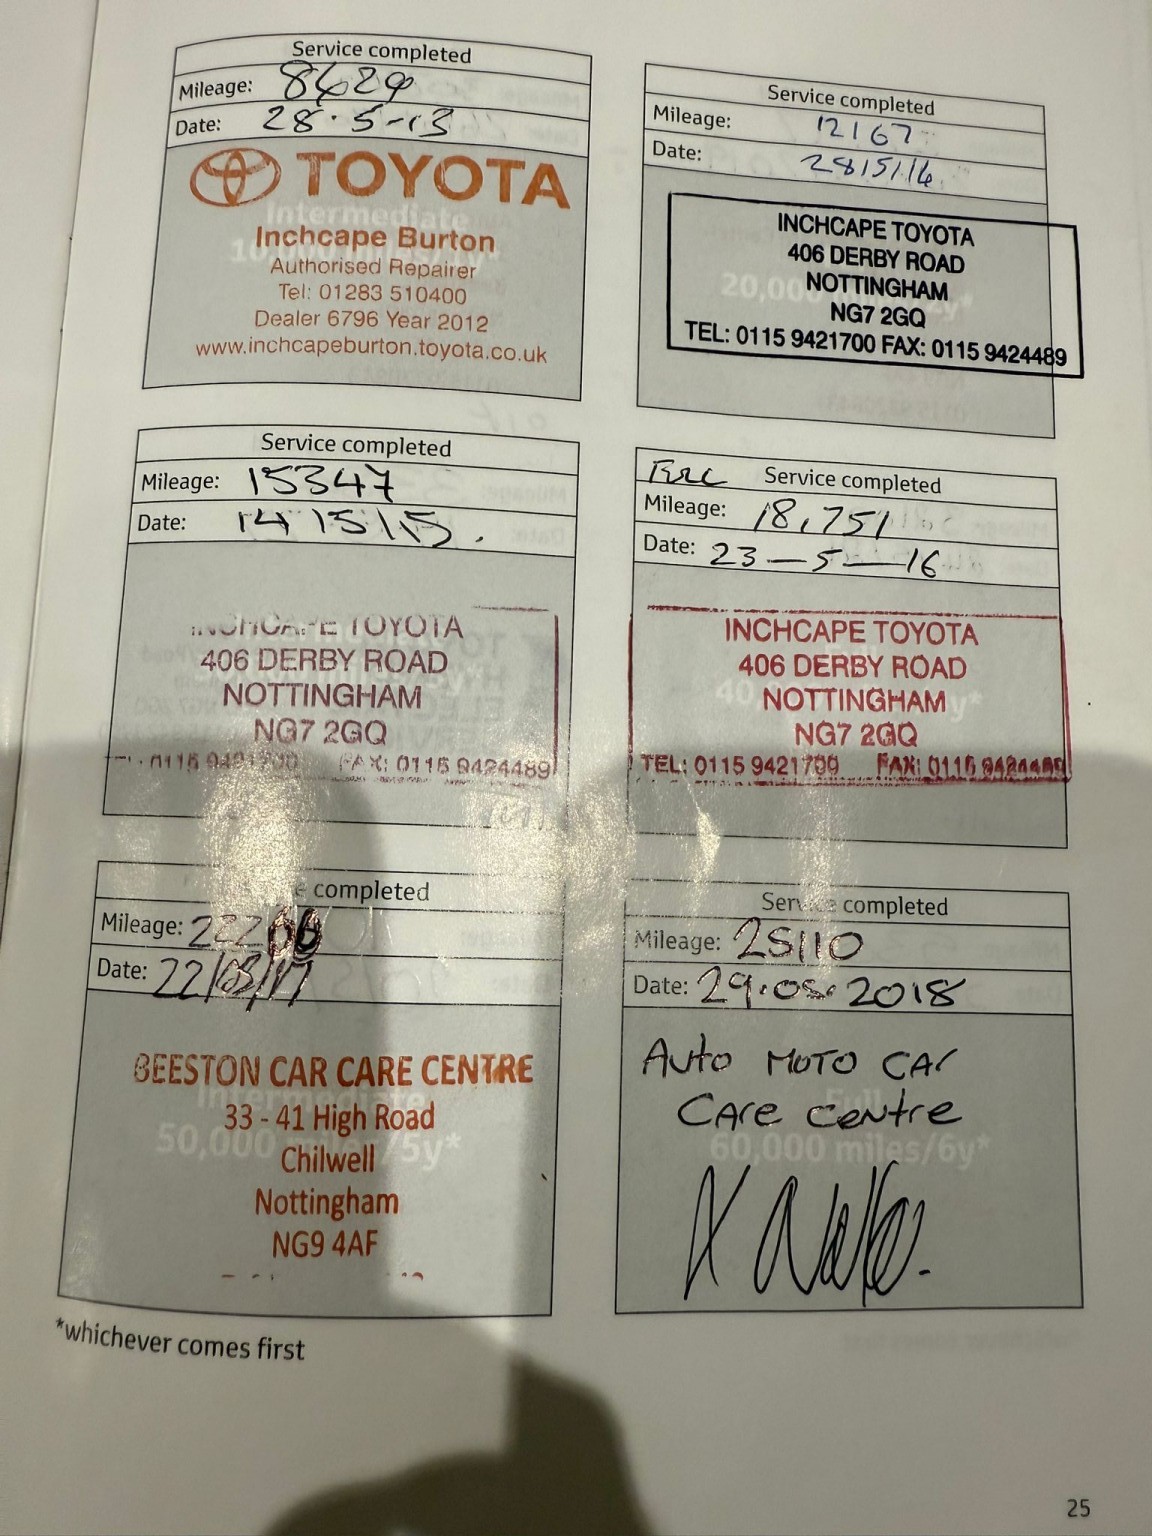 Service completed
Mileage: 8629
Date: 28.5-13
TOYOTA
Intermediate
Inchcape Burton
Authorised Repairer
Tel: 01283 510400
Dealer 6796 Year 2012
www.inchcapeburton.toyota.co.uk
Service completed
Mileage: 12167
Date: 28/5/14
INCHCAPE TOYOTA
406 DERBY ROAD
NOTTINGHAM
20,000
NG7 2GQ
TEL: 0115 9421700 FAX: 0115 9424489
Service completed
Mileage: 15347
Date: 14/5/15.
INCHCAPE TOYOTA
406 DERBY ROAD
NOTTINGHAM
NG7 2GQ
0115 9421700 FAX: 0115 9424489
Service completed
Mileage: 18,751
Date: 23-5-16
INCHCAPE TOYOTA
406 DERBY ROAD
NOTTINGHAM
NG7 2GQ
TEL: 0115 9421700 FAX: 0115 9424489
completed
Mileage:
Date: 22/03/17
BEESTON CAR CARE CENTRE
Intermediate
33 - 41 High Road
50,000 miles/5y*
Chilwell
Nottingham
NG9 4AF
Service completed
Mileage: 25110
Date: 29.05.2018
Auto MOTO CAr
CAre centre
Full
60,000 miles/6y*
*whichever comes first
25